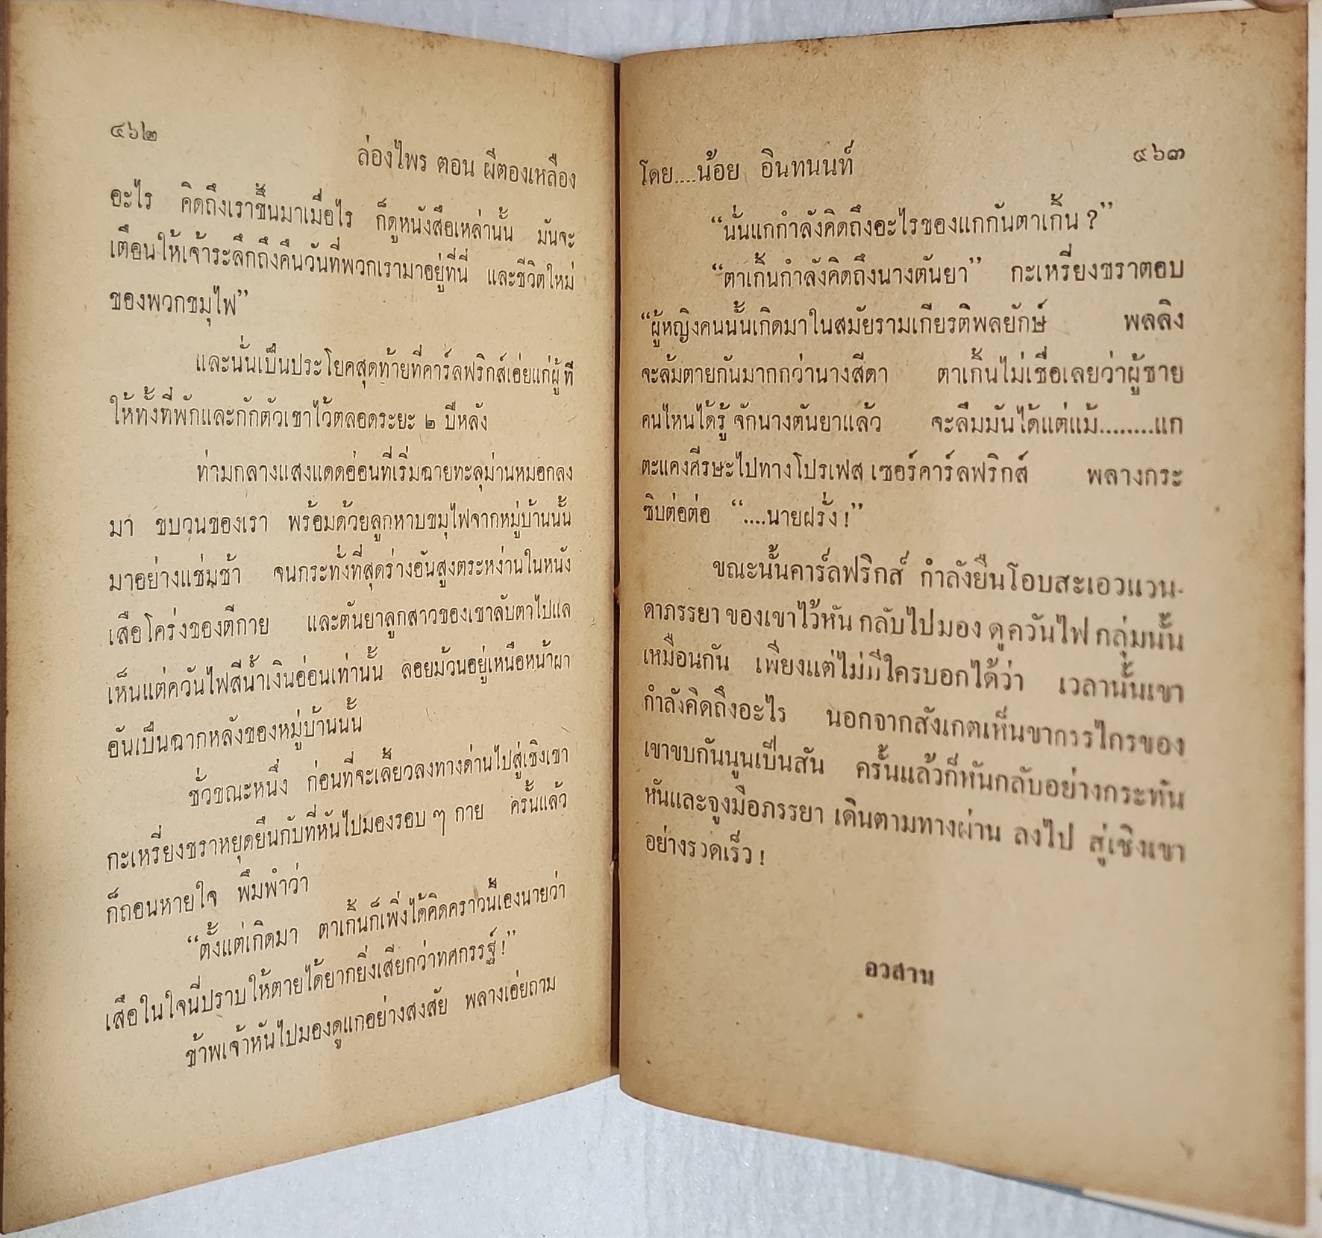 ๔๖๒
ล่องไพร ตอน ผีตองเหลือง
อะไร คิดถึงเราขึ้นมาเมื่อไร ก็ดูหนังสือเหล่านั้น มันจะ
เตือนให้เจ้าระลึกถึงคืนวันที่พวกเรามาอยู่ที่นี่ และชีวิตใหม่
ของพวกขมุไฟ”
และนั่นเป็นประโยคสุดท้ายที่คาร์ลฟริกส์เอ่ยแก่ผู้ที่
ให้ทั้งที่พักและกักตัวเขาไว้ตลอดระยะ ๒ ปีหลัง
ท่ามกลางแสงแดดอ่อนที่เริ่มฉายทะลุม่านหมอกลง
มา ขบวนของเรา พร้อมด้วยลูกหาบขมุไฟจากหมู่บ้านนั้น
มาอย่างแช่มช้า จนกระทั่งที่สุดร่างอันสูงตระหง่านในหนัง
เสือโคร่งของตีกาย และตันยาลูกสาวของเขาลับตาไปแล
เห็นแต่ควันไฟสีน้ำเงินอ่อนเท่านั้น ลอยม้วนอยู่เหนือหน้าผา
อันเป็นฉากหลังของหมู่บ้านนั้น
ชั่วขณะหนึ่ง ก่อนที่จะเลี้ยวลงทางด่านไปสู่เชิงเขา
กะเหรี่ยงชราหยุดยืนกับที่หันไปมองรอบ ๆ กาย ครั้นแล้ว
ก็ถอนหายใจ พึมพำว่า
“ตั้งแต่เกิดมา ตาเกิ้นก็เพิ่งได้คิดคราวนี้เองนายว่า
เสือในใจนี่ปราบให้ตายได้ยากยิ่งเสียกว่าทศกรรฐ์!”
ข้าพเจ้าหันไปมองดูแกอย่างสงสัย พลางเอ่ยถาม
โดย....น้อย อินทนนท์
๔๖๓
“นั่นแกกำลังคิดถึงอะไรของแกกันตาเกิ้น ?”
“ตาเกิ้นกำลังคิดถึงนางตันยา” กะเหรี่ยงชราตอบ
“ผู้หญิงคนนั้นเกิดมาในสมัยรามเกียรติพลยักษ์ พลลิง
จะล้มตายกันมากกว่านางสีดา ตาเกิ้นไม่เชื่อเลยว่าผู้ชาย
คนไหนได้รู้ จักนางตันยาแล้ว จะลืมมันได้แต่แม้........แก
ตะแคงศีรษะไปทางโปรเฟส เซอร์คาร์ลฟริกส์ พลางกระ
ซิบต่อต่อ “....นายฝรั่ง !”
ขณะนั้นคาร์ลฟริกส์ กำลังยืนโอบสะเอวแวน-
ดาภรรยา ของเขาไว้หัน กลับไปมอง ดูควันไฟ กลุ่มนั้น
เหมือนกัน เพียงแต่ไม่มีใครบอกได้ว่า เวลานั้นเขา
กำลังคิดถึงอะไร นอกจากสังเกตเห็นขากรรไกรของ
เขาขบกันนูนเป็นสัน ครั้นแล้วก็หันกลับอย่างกระทัน
หันและจูงมือภรรยา เดินตามทางผ่าน ลงไป สู่เชิงเขา
อย่างรวดเร็ว !
อวสาน